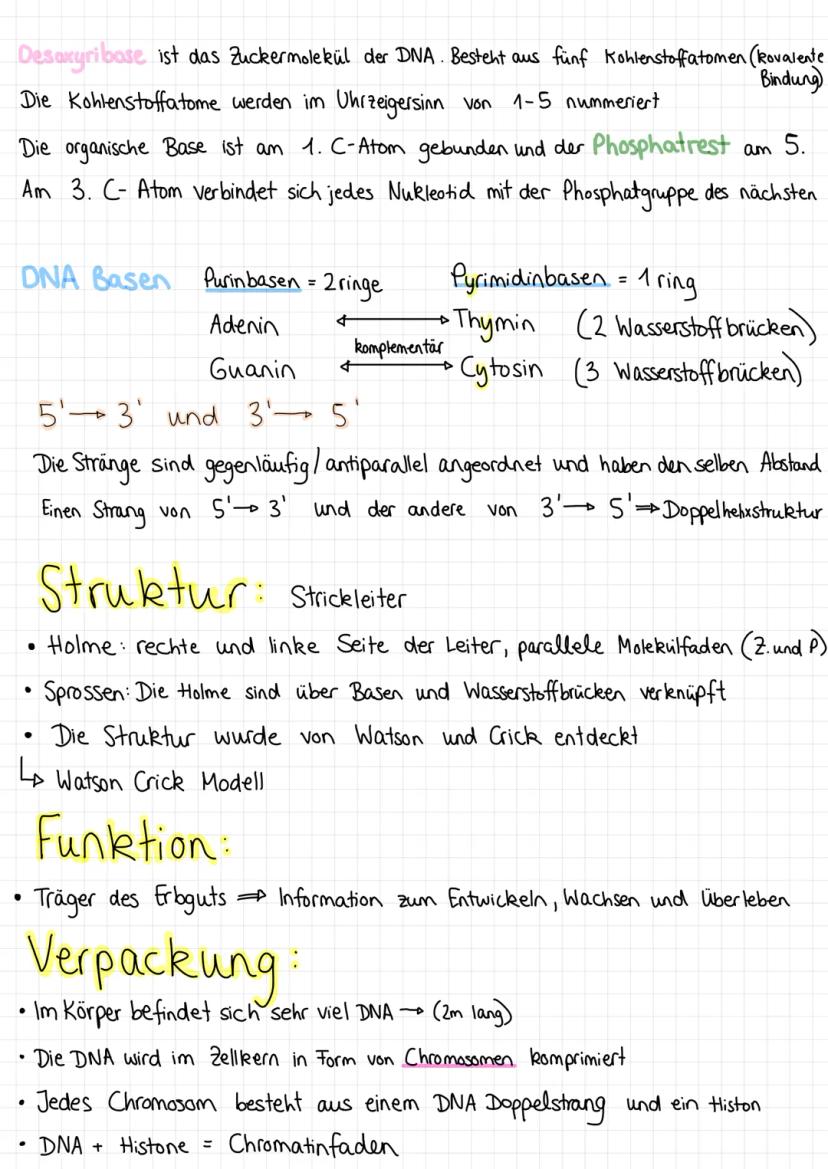 Desoxyribose ist das Zuckermolekül der DNA. Besteht aus fünf Kohlenstoffatomen (kovalente Bindung)
Die Kohlenstoffatome werden im Uhrzeigersinn von 1-5 nummeriert
Die organische Base ist am 1. C-Atom gebunden und der Phosphatrest am 5.
Am 3. C-Atom verbindet sich jedes Nukleotid mit der Phosphatgruppe des nächsten
DNA Basen Purinbasen = 2 ringe Pyrimidinbasen = 1 ring
Adenin ↔ Thymin (2 Wasserstoffbrücken)
komplementär
Guanin ↔ Cytosin (3 Wasserstoffbrücken)
5'→ 3' und 3'→ 5'
Die Stränge sind gegenläufig/antiparallel angeordnet und haben den selben Abstand
Einen Strang von 5'→ 3' und der andere von 3'→ 5' ⇒ Doppelhelixstruktur
Struktur: Strickleiter
• Holme: rechte und linke Seite der Leiter, parallele Molekülfaden (Z. und P)
• Sprossen: Die Holme sind über Basen und Wasserstoffbrücken verknüpft
• Die Struktur wurde von Watson und Crick entdeckt
↳ Watson Crick Modell
Funktion:
• Träger des Erbguts ⇒ Information zum Entwickeln, Wachsen und Überleben
Verpackung:
• Im Körper befindet sich sehr viel DNA → (2m lang)
• Die DNA wird im Zellkern in Form von Chromosomen komprimiert
• Jedes Chromosom besteht aus einem DNA Doppelstrang und ein Histon
• DNA + Histone = Chromatinfaden